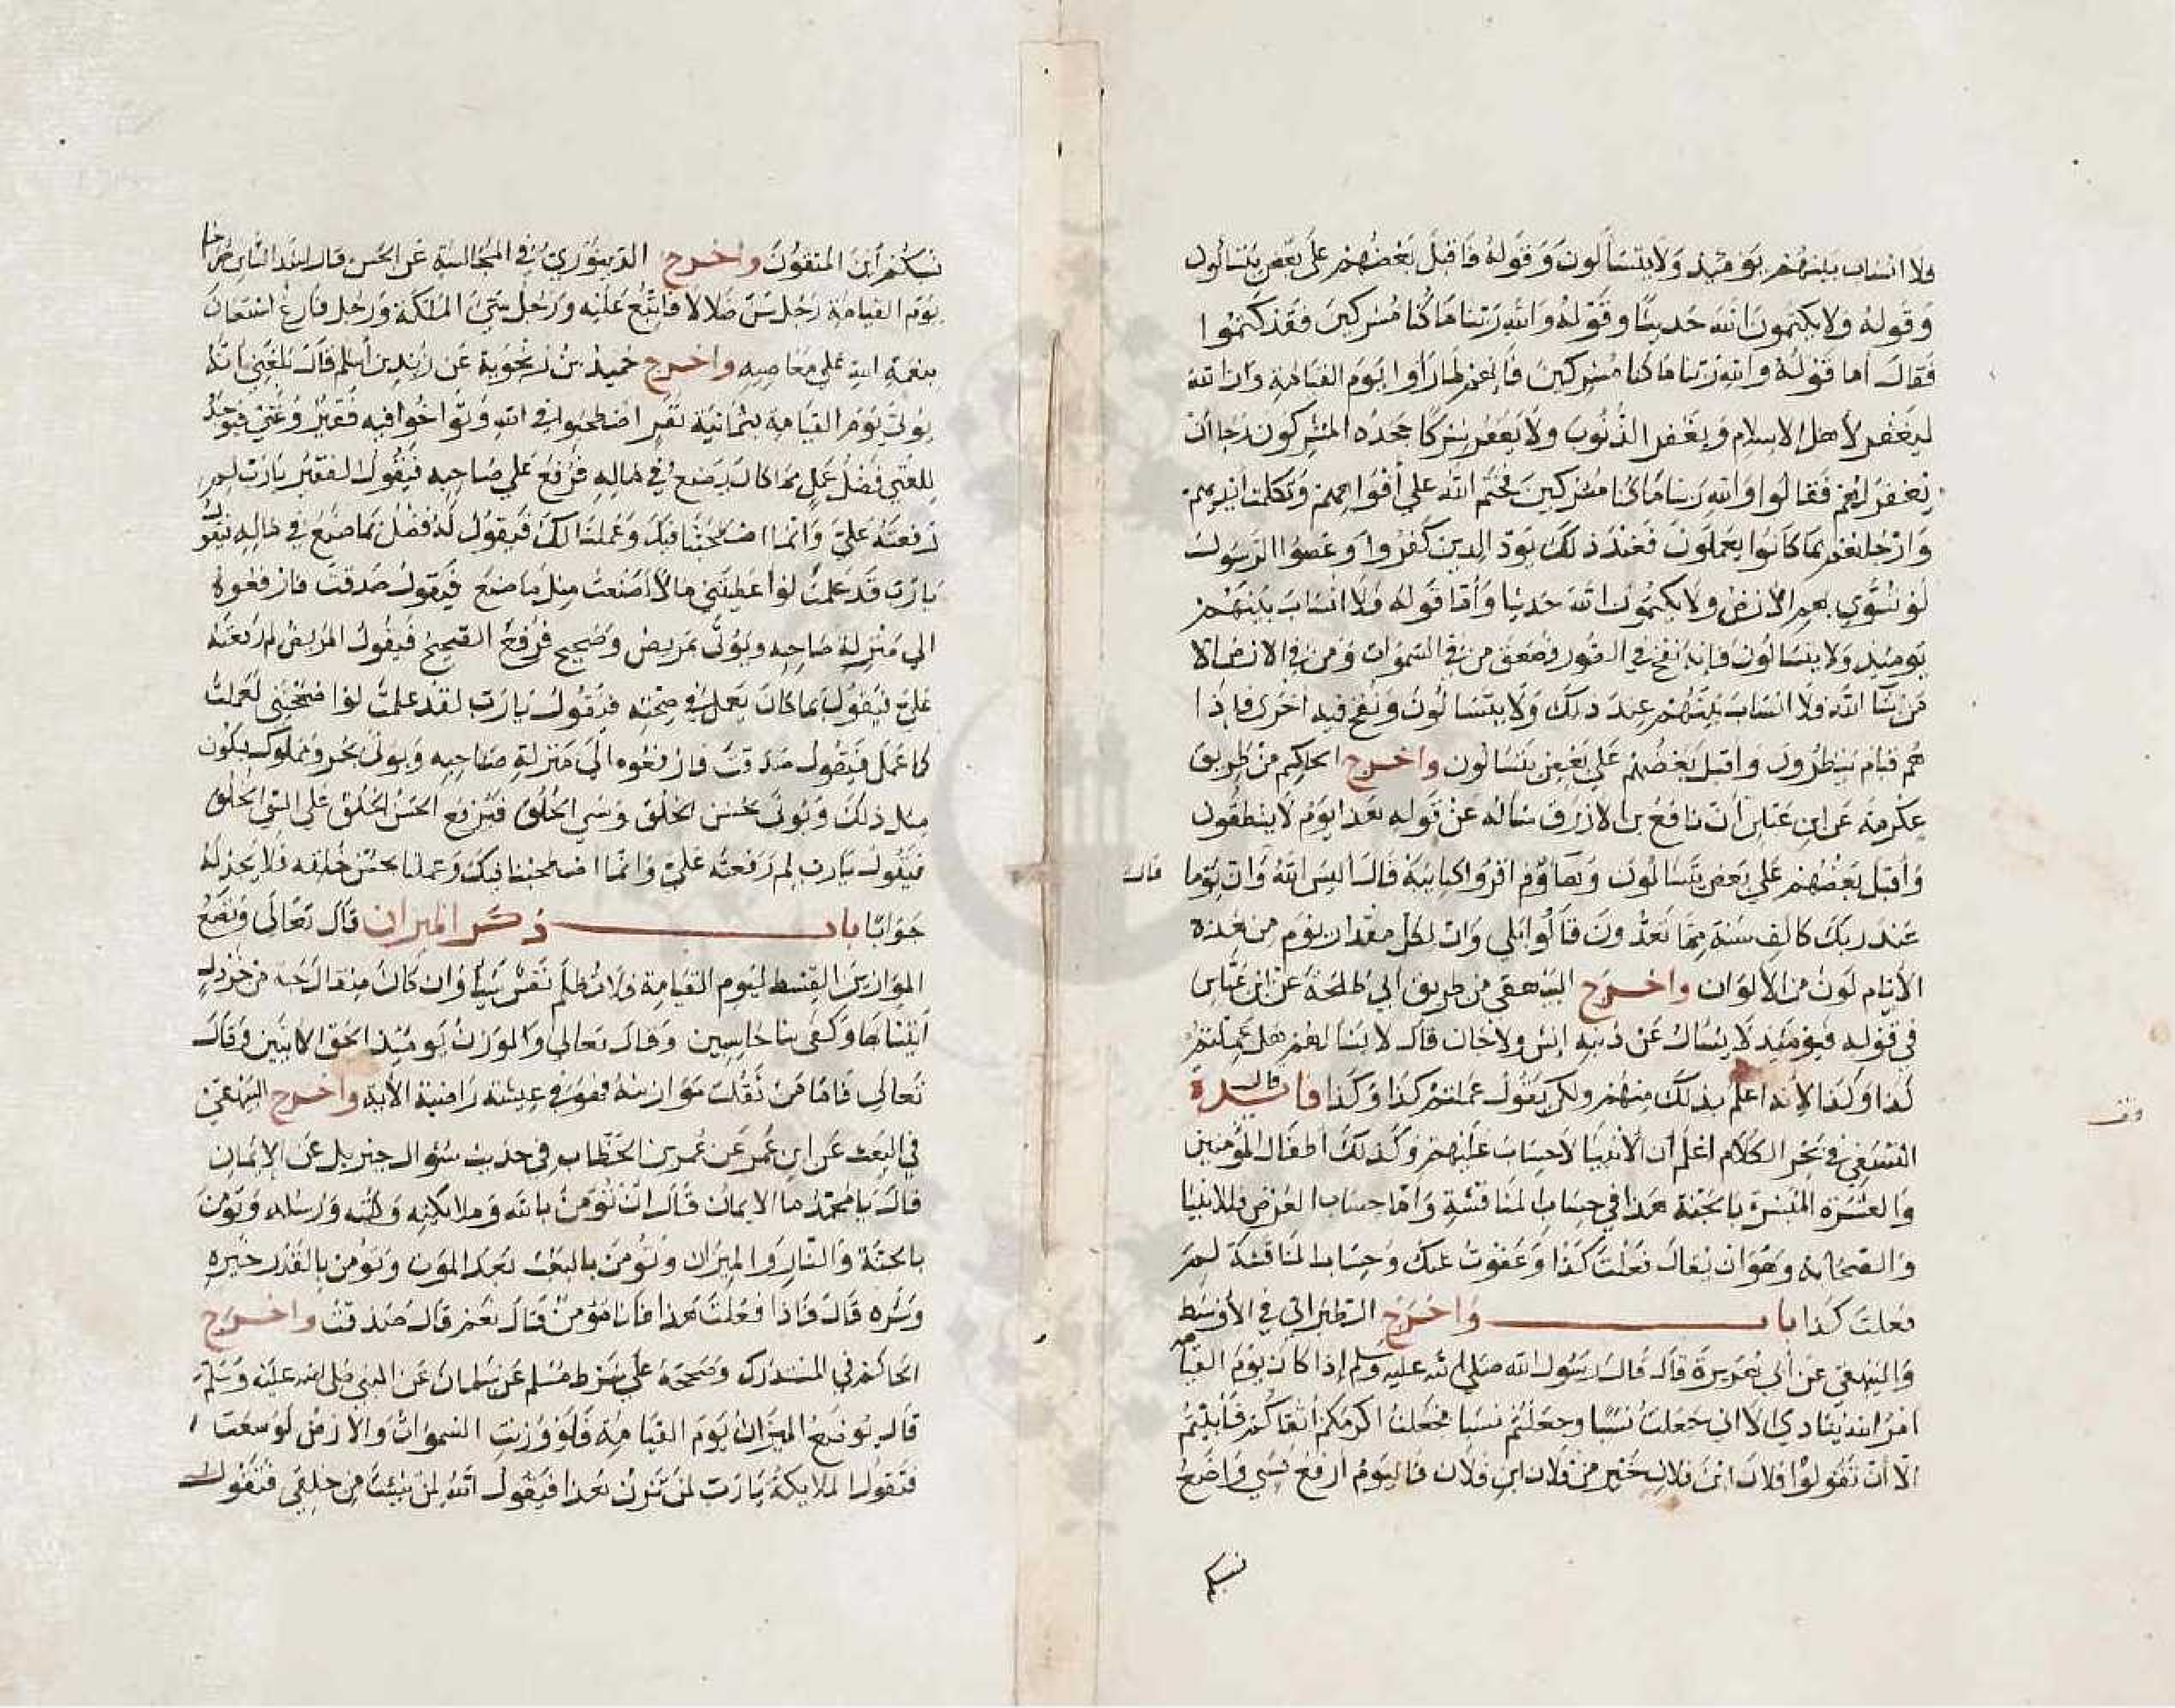 فلا انساب بينهم يومئذ ولا يتسألون وقوله فاقبل بعضهم على بعض يتسألون
وقوله ولا يكتمون الله حديثا وقوله والله ربنا ما كنا مشركين فقد كتموا
فقال أما قوله والله ربنا ما كنا مشركين فانهم لما رأوا يوم القيامة وان الله
ليغفر لأهل الاسلام ويغفر الذنوب ولا يغفر شركا جحده المشركون رجا أن
يغفر لهم فقالوا والله ربنا ما كنا مشركين فختم الله علي أفواههم وتكلمت أيديهم
وارجلهم بما كانوا يعملون فعند ذلك يود الذين كفروا وعصوا الرسول
لو تسوي بهم الأرض ولا يكتمون الله حديثا وأما قوله فلا انساب بينهم
يومئذ ولا يتسالون فإنه نفخ في الصور فصعق من في السموات ومن في الارض الا
من شا الله فلا انساب بينهم عند ذلك ولا يتسالون ونفخ فيه اخرى فإذا
هم قيام ينظرون واقبل بعضهم علي بعض يتسالون واخرج الحاكم من طريق
عكرمة عن ابن عباس أن نافع بن الازرق ساله عن قوله هذا يوم لا ينطقون
وأقبل بعضهم علي بعض يتسالون وهاؤم اقروا كتابيه قال أليس الله وان يوما
قال
عند ربك كالف سنة مما تعدون قالوا بلي وان لكل مقدار يوم من هذه
الأيام لون من الألوان واخرج البيهقي من طريق ابي طلحة عن ابن عباس
في قوله فيومئذ لا يسال عن ذنبه إنس ولا جان قال لا يسالهم هل عملتم
كذا وكذا لأنه اعلم بذلك منهم ولكن يقول عملتم كذا وكذا فائدة قال
النسفي في بحر الكلام اعلم أن الأنبيا لا حساب عليهم وكذلك أطفال المؤمنين
والعشرة المبشرة بالجنة هذا في حساب المناقشة وأما حساب العرض فللانبيا
والصحابة وهو ان يقال فعلت كذا وعفوت عنك وحساب المناقشة لم
فعلت كذا باب واخرج الطبراني في الأوسط
والبيهقي عن أبي هريرة قال قال رسول الله صلى الله عليه وسلم إذا كان يوم القيامه
امر الله يناد ي الا اني جعلت نسبا وجعلتم نسبا فجعلت اكرمكم أتقاكم فأبيتم
الا أن تقولوا فلان ابن فلان خير من فلان ابن فلان فاليوم ارفع نسبي واضع
نسبكم
وقف
نسبكم أين المتقون واخرج الدينوري في المجالسة عن الحسن قال اشد الناس صراخا
يوم القيامة رجل سن ضلالا فاتبع عليه ورجل سيئ الملكة ورجل فارغ استعان
بنعمة الله علي معاصيه واخرج حميد بن زنجويه عن زيد بن أسلم قال بلغني انه
يوتى يوم القيامة بثمانية نفر اصطحبوا في الله وتواخوا فيه فقير وغني فيوجد
للغني فضل عمل مما كان يصنع في ماله فرفع علي صاحبه فيقول الفقير يارب لم
رفعته علي وانما اصطحبنا فيك وعملنا لك فيقول له فضل بما صنع في ماله فيقول
يارب قد علمت لو أعطيتني مالا اصنعت مثل ما صنع فيقول صدقت فارفعوه
الي منزلة صاحبه ويوتى بمريض وصحيح فرفع الصحيح فيقول المريض لم رفعته
علي فيقول بما كان يعمل في صحته فيقول يارب لقد علمت لو اصححتني لعملت
كما عمل فيقول صدقت فارفعوه الي منزلة صاحبه ويوتى بحر ومملوك فيكون
مثل ذلك ويوتى بحسن الخلق وسيئ الخلق فيرفع الحسن الخلق علي السيئ الخلق
فيقول يارب لم رفعته علي وانما اصطحبنا فيك وعملنا بحسن خلقه فلا يجد له
جوابا باب ذكر الميزان قال تعالى ونضع
الموازين القسط ليوم القيامة فلا تظلم نفس شيأ وان كان مثقال حبة من خردل
أتينا بها وكفى بنا حاسبين وقال تعالى والوزن يومئذ الحق الايتين وقال
تعالى فاما من ثقلت موازينه فهو في عيشة راضية الأية واخرج البيهقي
في البعث عن ابن عمر عن عمر بن الخطاب في حديث سؤال جبريل عن الإيمان
قال يا محمد ما الايمان قال ان تؤمن بالله وملائكته وكتبه ورسله وتؤمن
بالجنة والنار والميزان وتؤمن بالبعث بعد الموت وتؤمن بالقدر خيره
وشره قال فاذا فعلت هذا فانا مؤمن قال نعم قال صدقت واخرج
الحاكم في المستدرك وصححه علي شرط مسلم عن سلمان عن النبي صلى الله عليه وسلم
قال يوضع الميزان يوم القيامة فلو وزنت السموات والارض لوسعت
فتقول الملايكة يارب لمن تزن هذا فيقول الله لمن شئت من خلقي فتقول